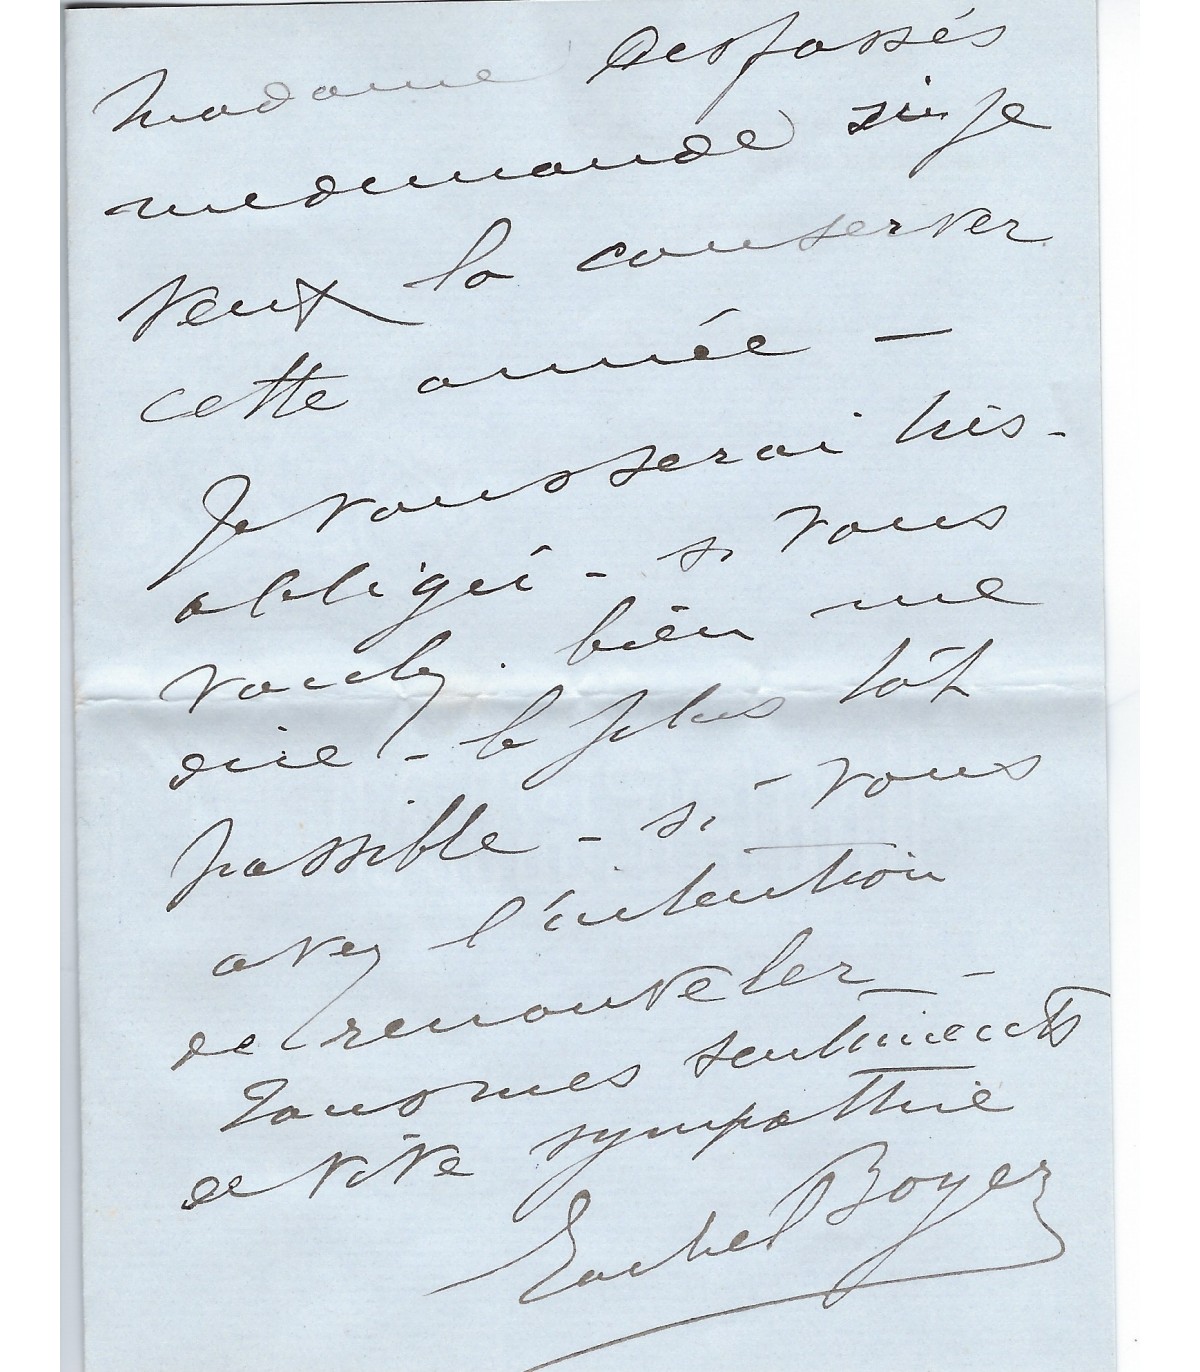 Madame Desfossés
me demande si je
veux la conserver
cette année —
Je vous serai très -
obligée - si vous
voulez bien me
dire - le plus tôt
possible - si - vous
avez l'intention
de renouveler —
Tous mes sentiments
de vive sympathie
Rachel Boyer